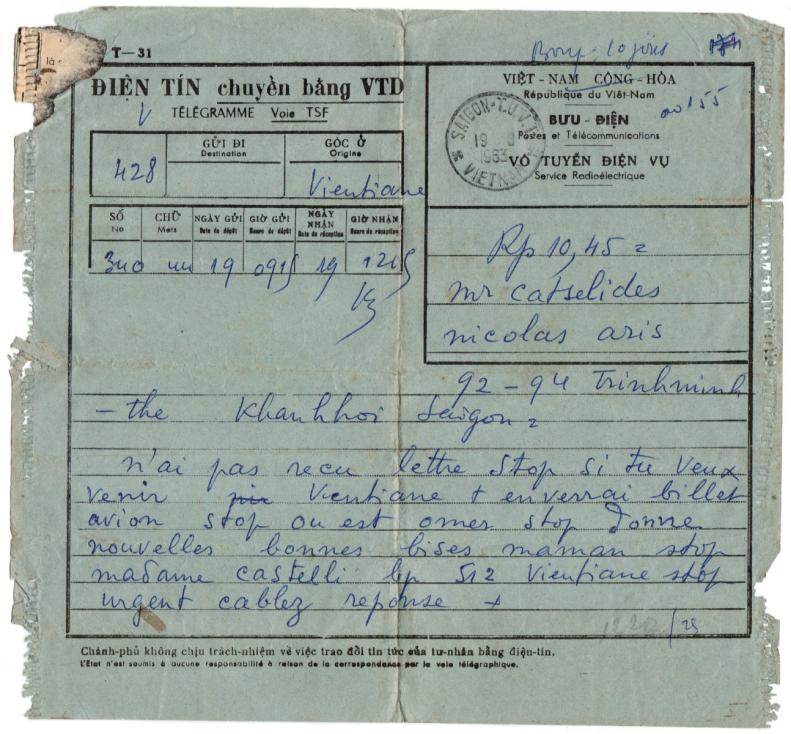 T-31
ĐIỆN TÍN chuyển bằng VTD
TÉLÉGRAMME Voie TSF
VIỆT-NAM CỘNG-HÒA
République du Việt-Nam
BƯU-ĐIỆN
Postes et Télécommunications
VÔ TUYẾN ĐIỆN VỤ
Service Radioélectrique
00155
SAIGON-T.U.V.T
19
1963
VIETNAM
428
GỬI ĐI
Destination
GỐC Ở
Origine
Vientiane
SỐ
No
CHỮ
Mots
NGÀY GỬI
Date de dépôt
GIỜ GỬI
Heure de dépôt
NGÀY NHẬN
Date de réception
GIỜ NHẬN
Heure de réception
340 19 0915 19 1215
Rp 10,45 =
mr catselides
nicolas aris
92-94 Trinhminh
- the Khanhhoi Saigon =
n'ai pas recu lettre stop si tu veux
venir Vientiane t enverrai billet
avion stop ou est omer stop donne
nouvelles bonnes bises maman stop
madame castelli bp 512 Vientiane stop
urgent cablez reponse +
1220/25
Chánh-phủ không chịu trách-nhiệm về việc trao đổi tin tức của tư-nhân bằng điện-tín.
L'Etat n'est soumis à aucune responsabilité à raison de la correspondance par la voie télégraphique.